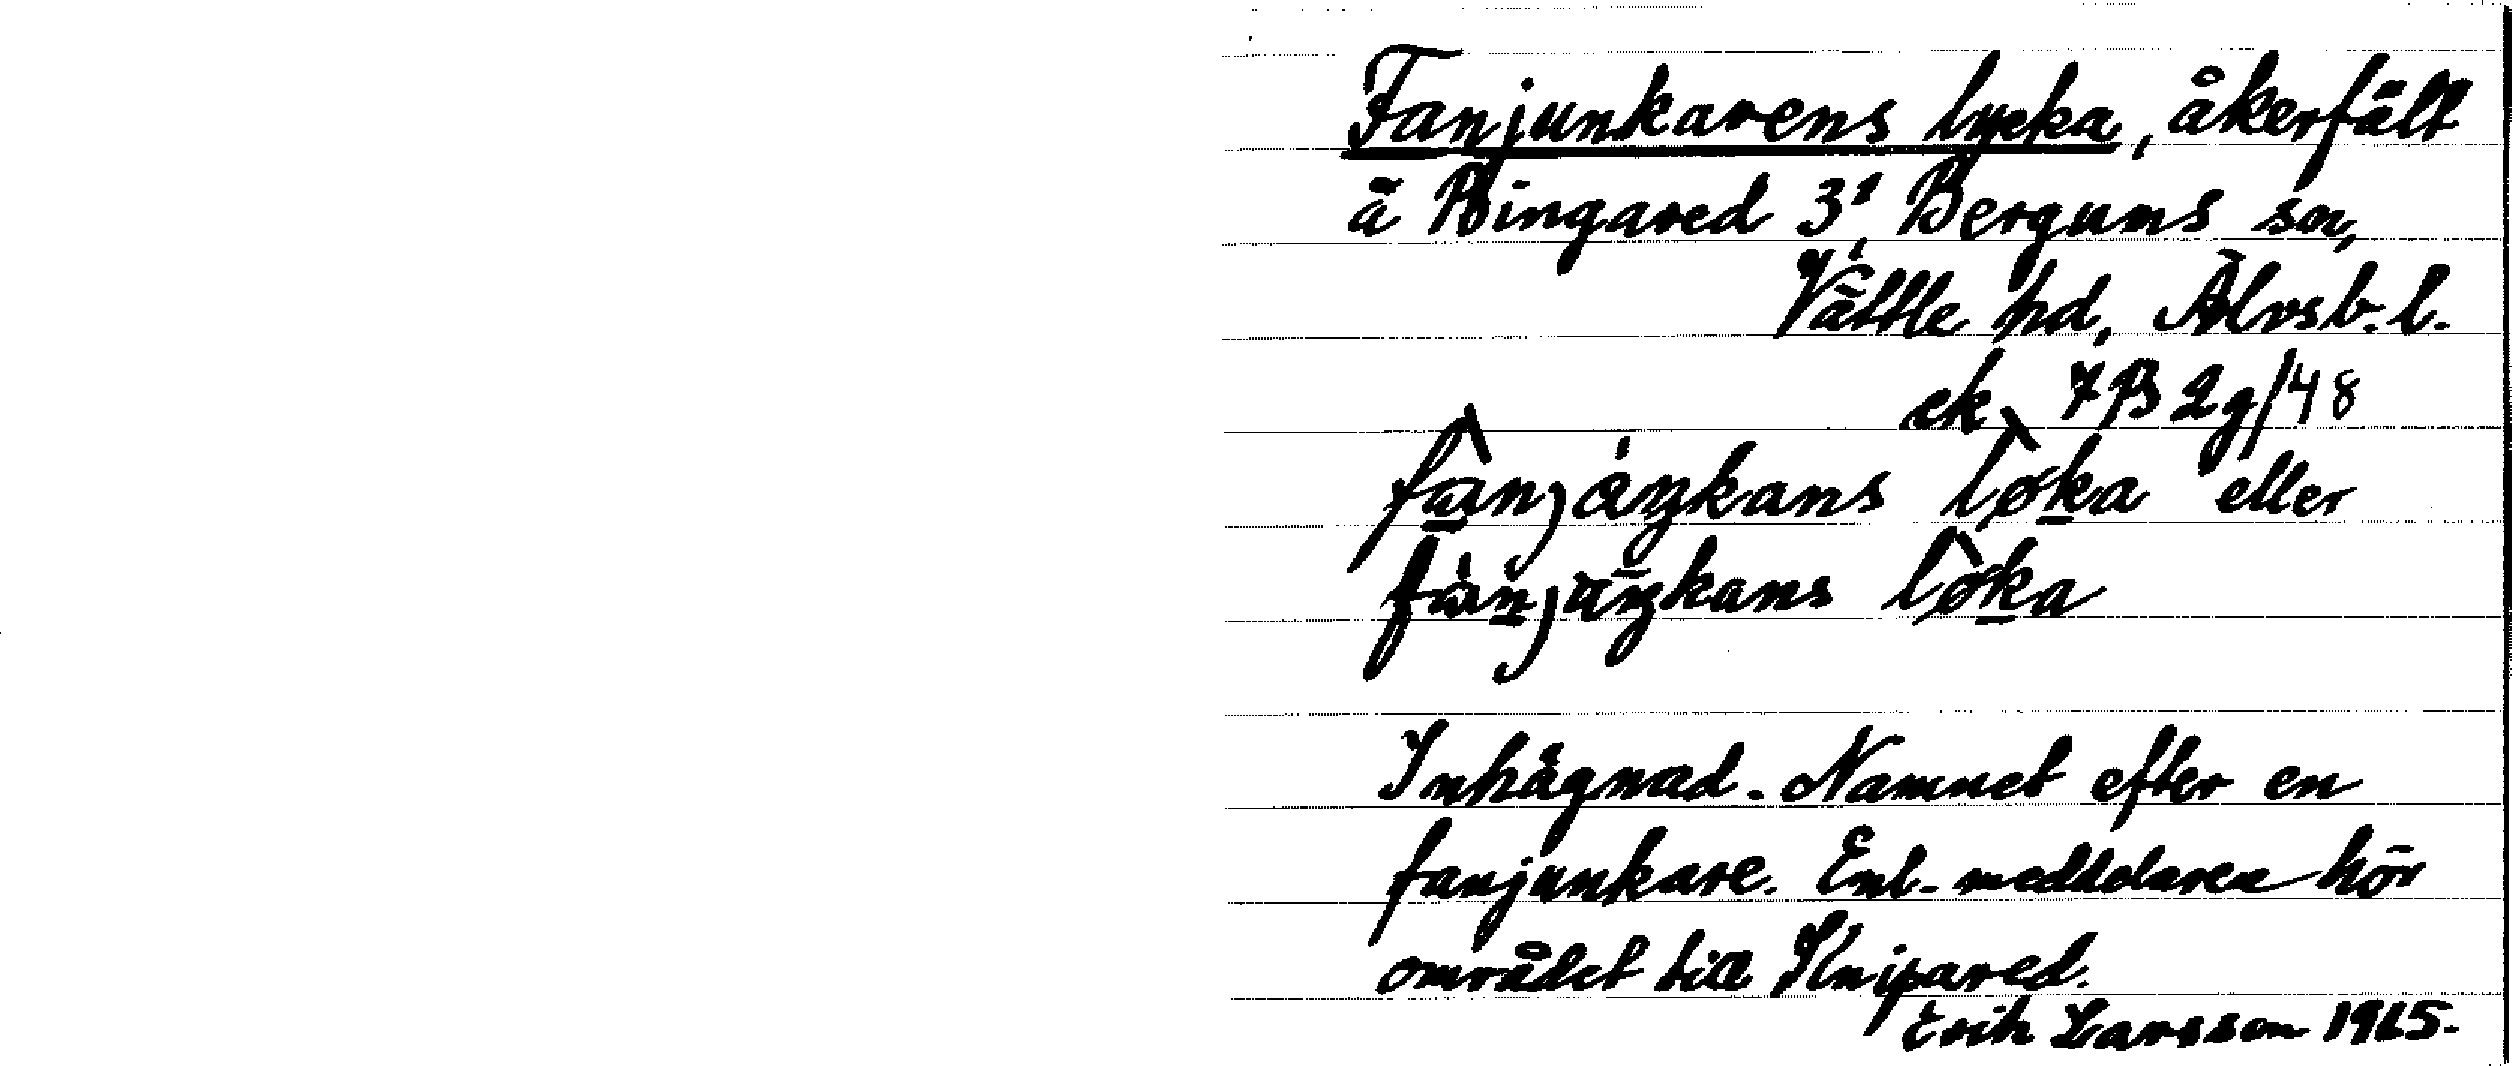 Fanjunkarens lycka, åkerfält
å Ringared 3¹, Bergums sn,
Vättle hd, Älvsb. l.
ek 7B 2g/48
lo̱ka eller
lo̱ka
Inhägnad. Namnet efter en
fanjunkare. Enl. meddelaren hör
området till Knipared.
Erik Larsson 1965.